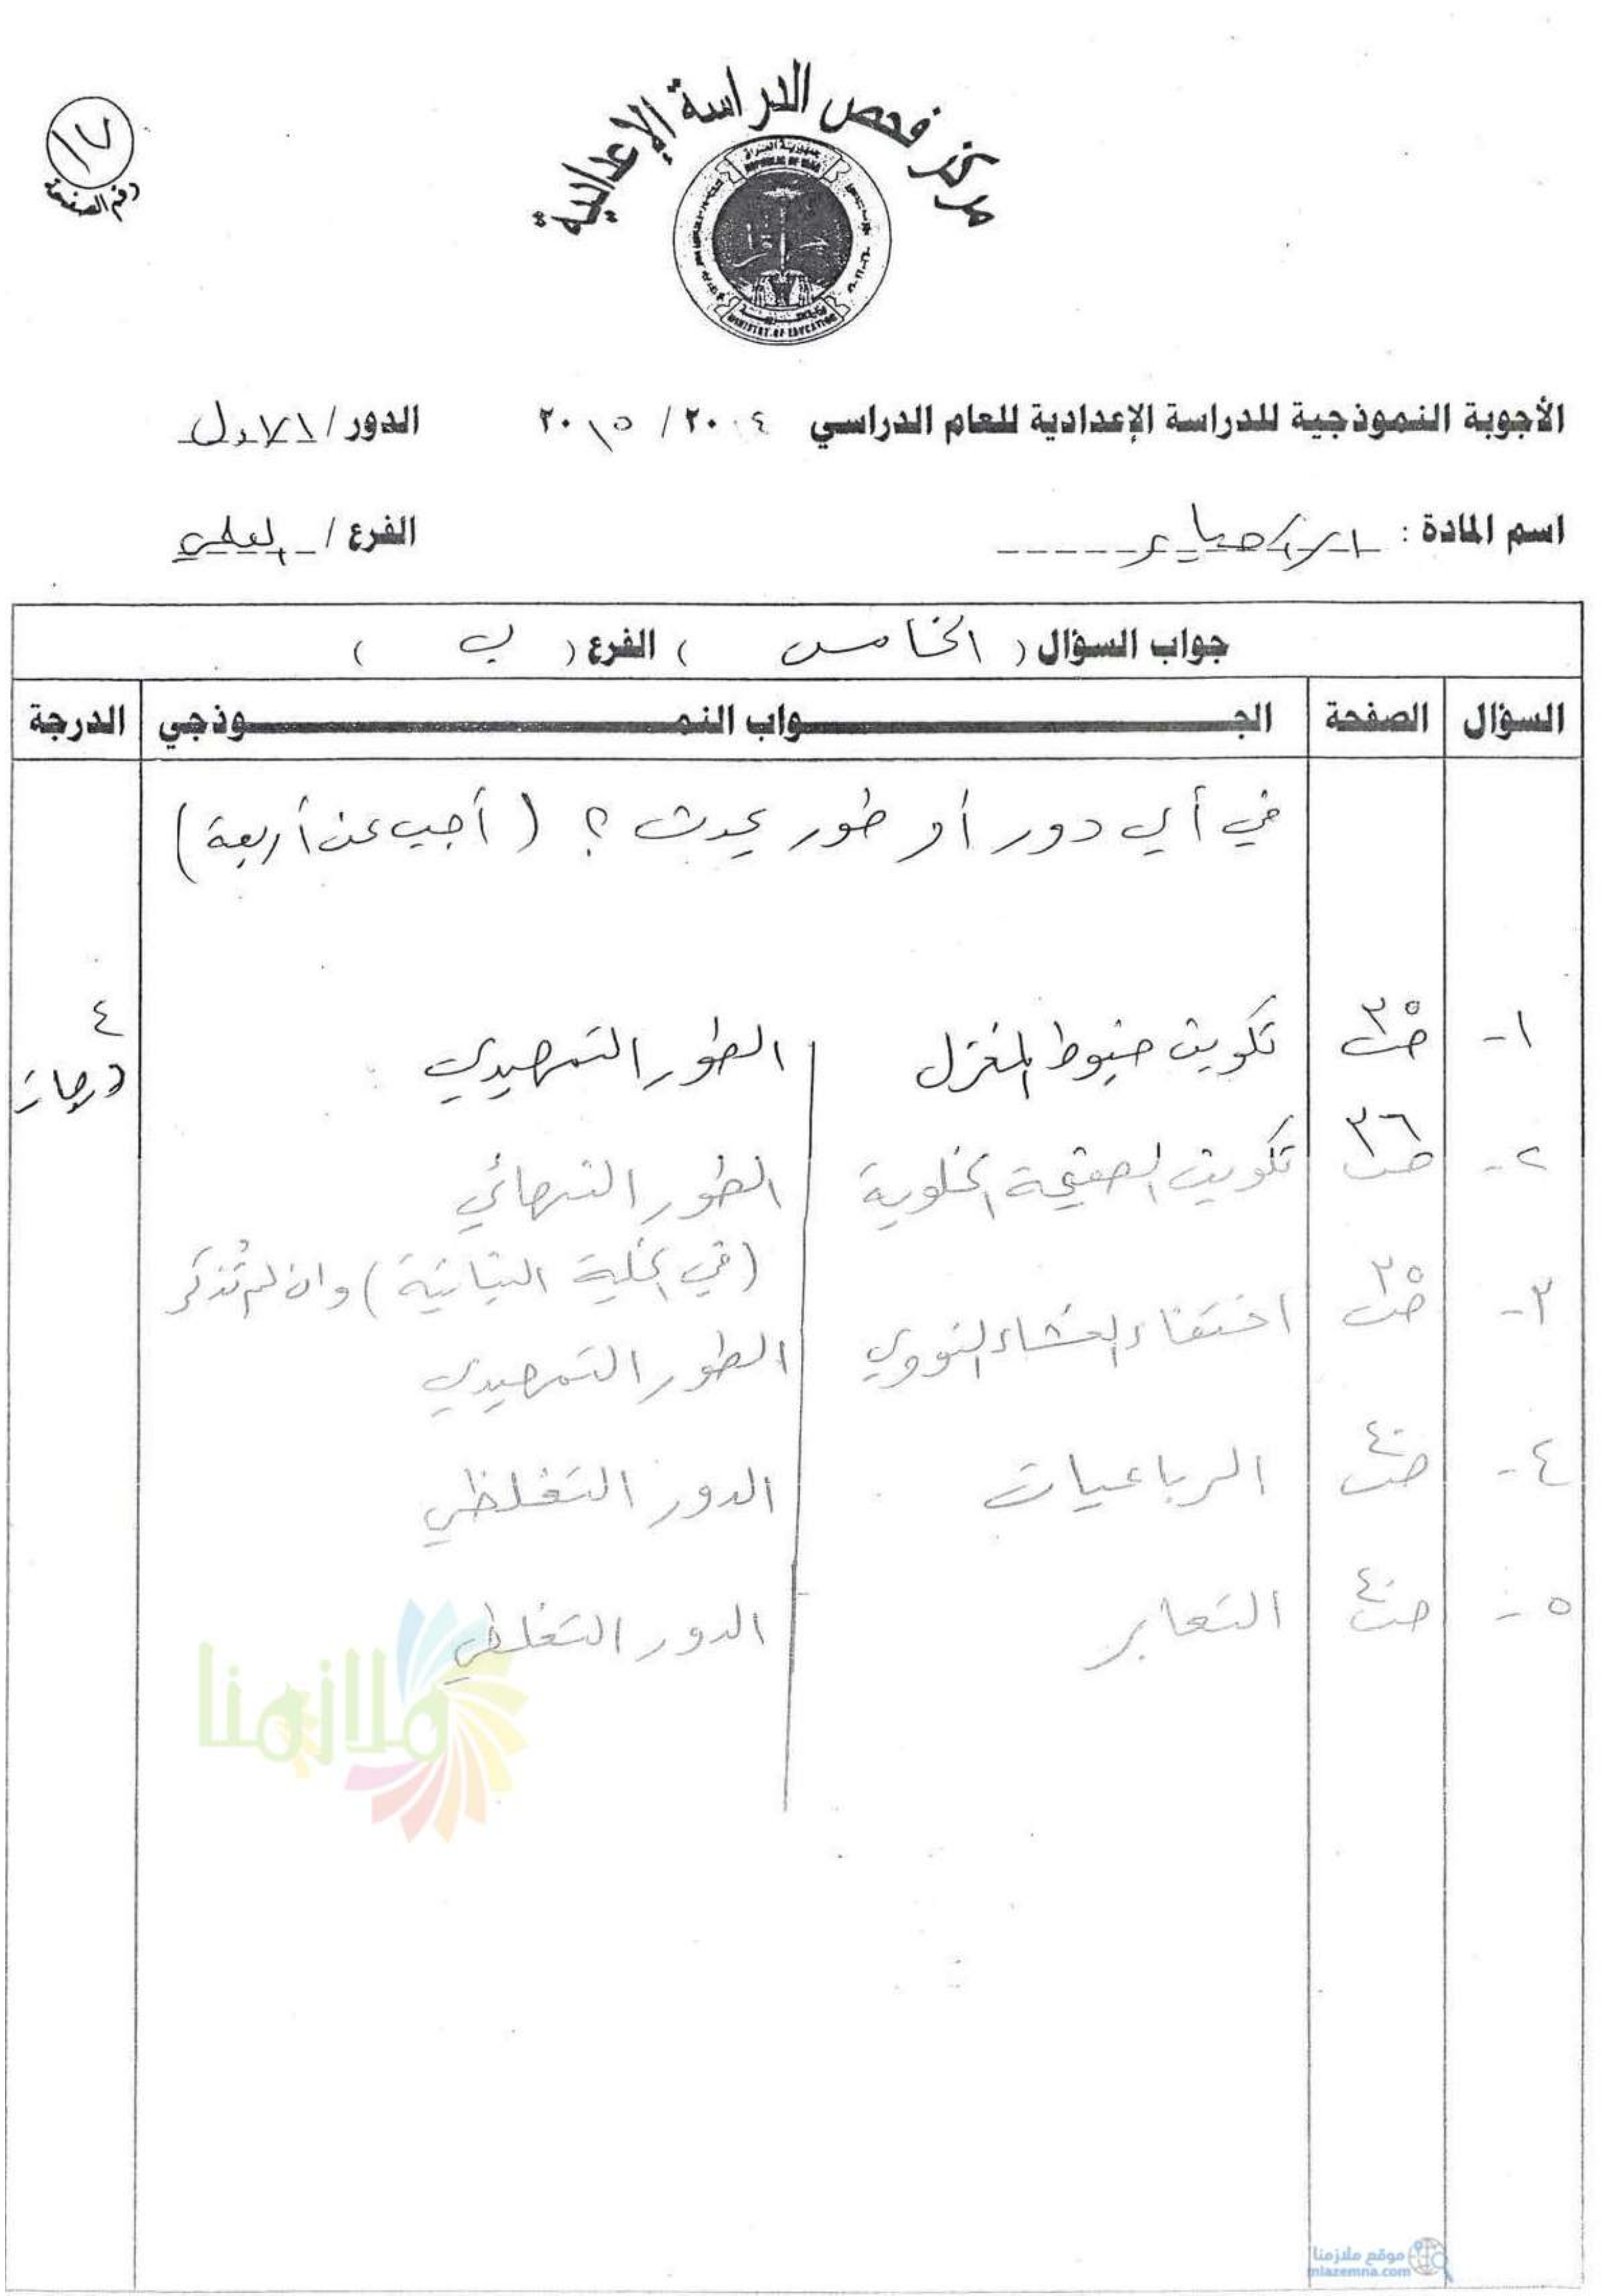 مركز فحص الدراسة الإعدادية
جمهورية العراق
REPUBLIC OF IRAQ
MINISTRY OF EDUCATION
١٧
رقم الصفحة
الأجوبة النموذجية للدراسة الإعدادية للعام الدراسي ٢٠١٤ / ٢٠١٥ الدور / الاول
اسم المادة : الاحياء الفرع / العلمي
جواب السؤال ( الخامس ) الفرع ( ب )
السؤال الصفحة الجـــواب النمـــوذجي الدرجة
في أي دور أو طور يحدث ؟ ( أجب عن أربعة )
١- ص٣٥ تكوين خيوط المغزل الطور التمهيدي ٤ درجات
٢- ص٣٦ تكوين الصفيحة الخلوية الطور النهائي
(في الخلية النباتية) وان لم تُذكر
٣- ص٣٥ اختفاء الغشاء النووي الطور التمهيدي
٤- ص٤٠ الرباعيات الدور التغلظي
٥- ص٤٠ التعابر الدور التغلظي
ملازمنا
موقع ملازمنا
mlazemna.com